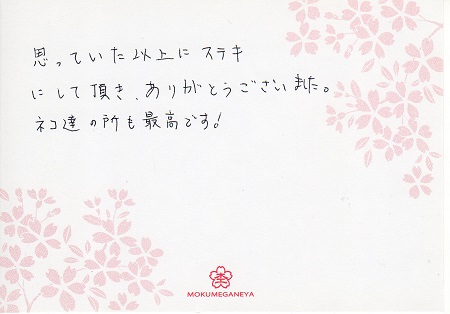 思っていた以上にステキ
にして頂き、ありがとうございました。
ネコ達の所も最高です!
MOKUMEGANEYA